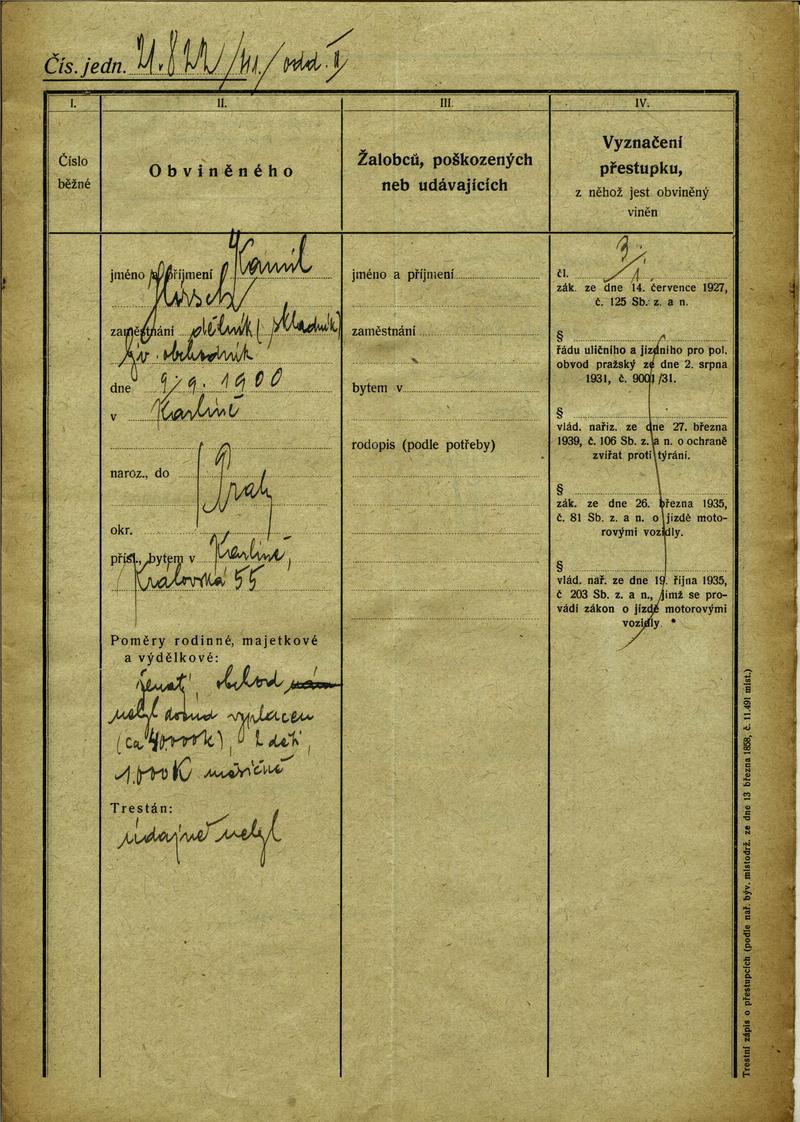 Čís. jedn. 21.822/41./odd. II/
I.
Číslo
běžné
II.
Obviněného
III.
Žalobců, poškozených
neb udávajících
IV.
Vyznačení
přestupku,
z něhož jest obviněný
viněn
jméno a příjmení Kamil
Hirsch
zaměstnání dělník (skladník)
býv. obchodník
dne 9/9. 1900
v Karlíně
naroz., do
Prahy
okr.
přísl., bytem v Karlíně,
Královská 55
Poměry rodinné, majetkové
a výdělkové:
ženatý, obchod
nebyl dosud vyplacen
(ca 40000K), 2 děti,
1.000K měsíčně
Trestán:
údajně nebyl
jméno a příjmení
zaměstnání
bytem v
rodopis (podle potřeby)
čl. 3/1.
zák. ze dne 14. července 1927,
č. 125 Sb. z. a n.
§
řádu uličního a jízdního pro pol.
obvod pražský ze dne 2. srpna
1931, č. 9001/31.
§
vlád. naříz. ze dne 27. března
1939, č. 106 Sb. z. a n. o ochraně
zvířat proti týrání.
§
zák. ze dne 26. března 1935,
č. 81 Sb. z. a n. o jízdě moto-
rovými vozidly.
§
vlád. nař. ze dne 19. října 1935,
č 203 Sb. z. a n., jímž se pro-
vádí zákon o jízdě motorovými
vozidly.
Trestní zápis o přestupcích (podle nař. býv. místodrž. ze dne 13 března 1858, č. 11.491 míst.)